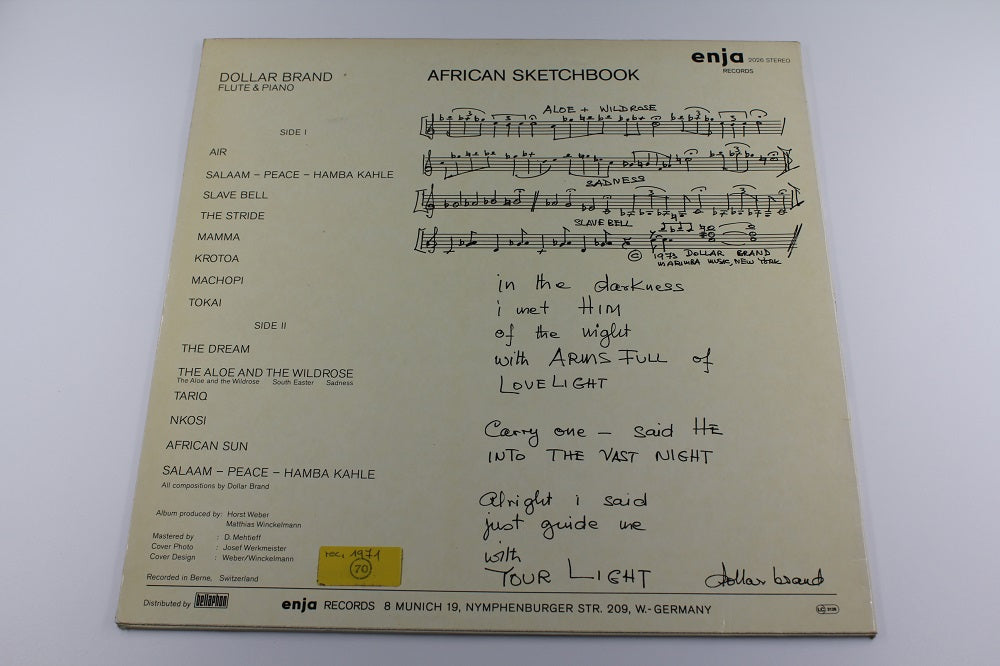 DOLLAR BRAND
FLUTE & PIANO
AFRICAN SKETCHBOOK
enja 2026 STEREO
RECORDS
SIDE I
AIR
SALAAM – PEACE – HAMBA KAHLE
SLAVE BELL
THE STRIDE
MAMMA
KROTOA
MACHOPI
TOKAI
SIDE II
THE DREAM
THE ALOE AND THE WILDROSE
The Aloe and the Wildrose South Easter Sadness
TARIQ
NKOSI
AFRICAN SUN
SALAAM – PEACE – HAMBA KAHLE
All compositions by Dollar Brand
Album produced by: Horst Weber
Matthias Winckelmann
Mastered by : D. Mehtieff
Cover Photo : Josef Werkmeister
Cover Design : Weber/Winckelmann
rec. 1971
70
Recorded in Berne, Switzerland
ALOE + WILDROSE
SADNESS
SLAVE BELL
© 1973 DOLLAR BRAND
MARIMBA MUSIC, NEW YORK
in the darkness
i met HIM
of the night
with ARMS FULL of
LOVELIGHT
Carry one – said HE
INTO THE VAST NIGHT
Alright i said
just guide me
with
YOUR LIGHT
dollar brand
Distributed by bellaphon
enja RECORDS 8 MUNICH 19, NYMPHENBURGER STR. 209, W.-GERMANY
LC 3126